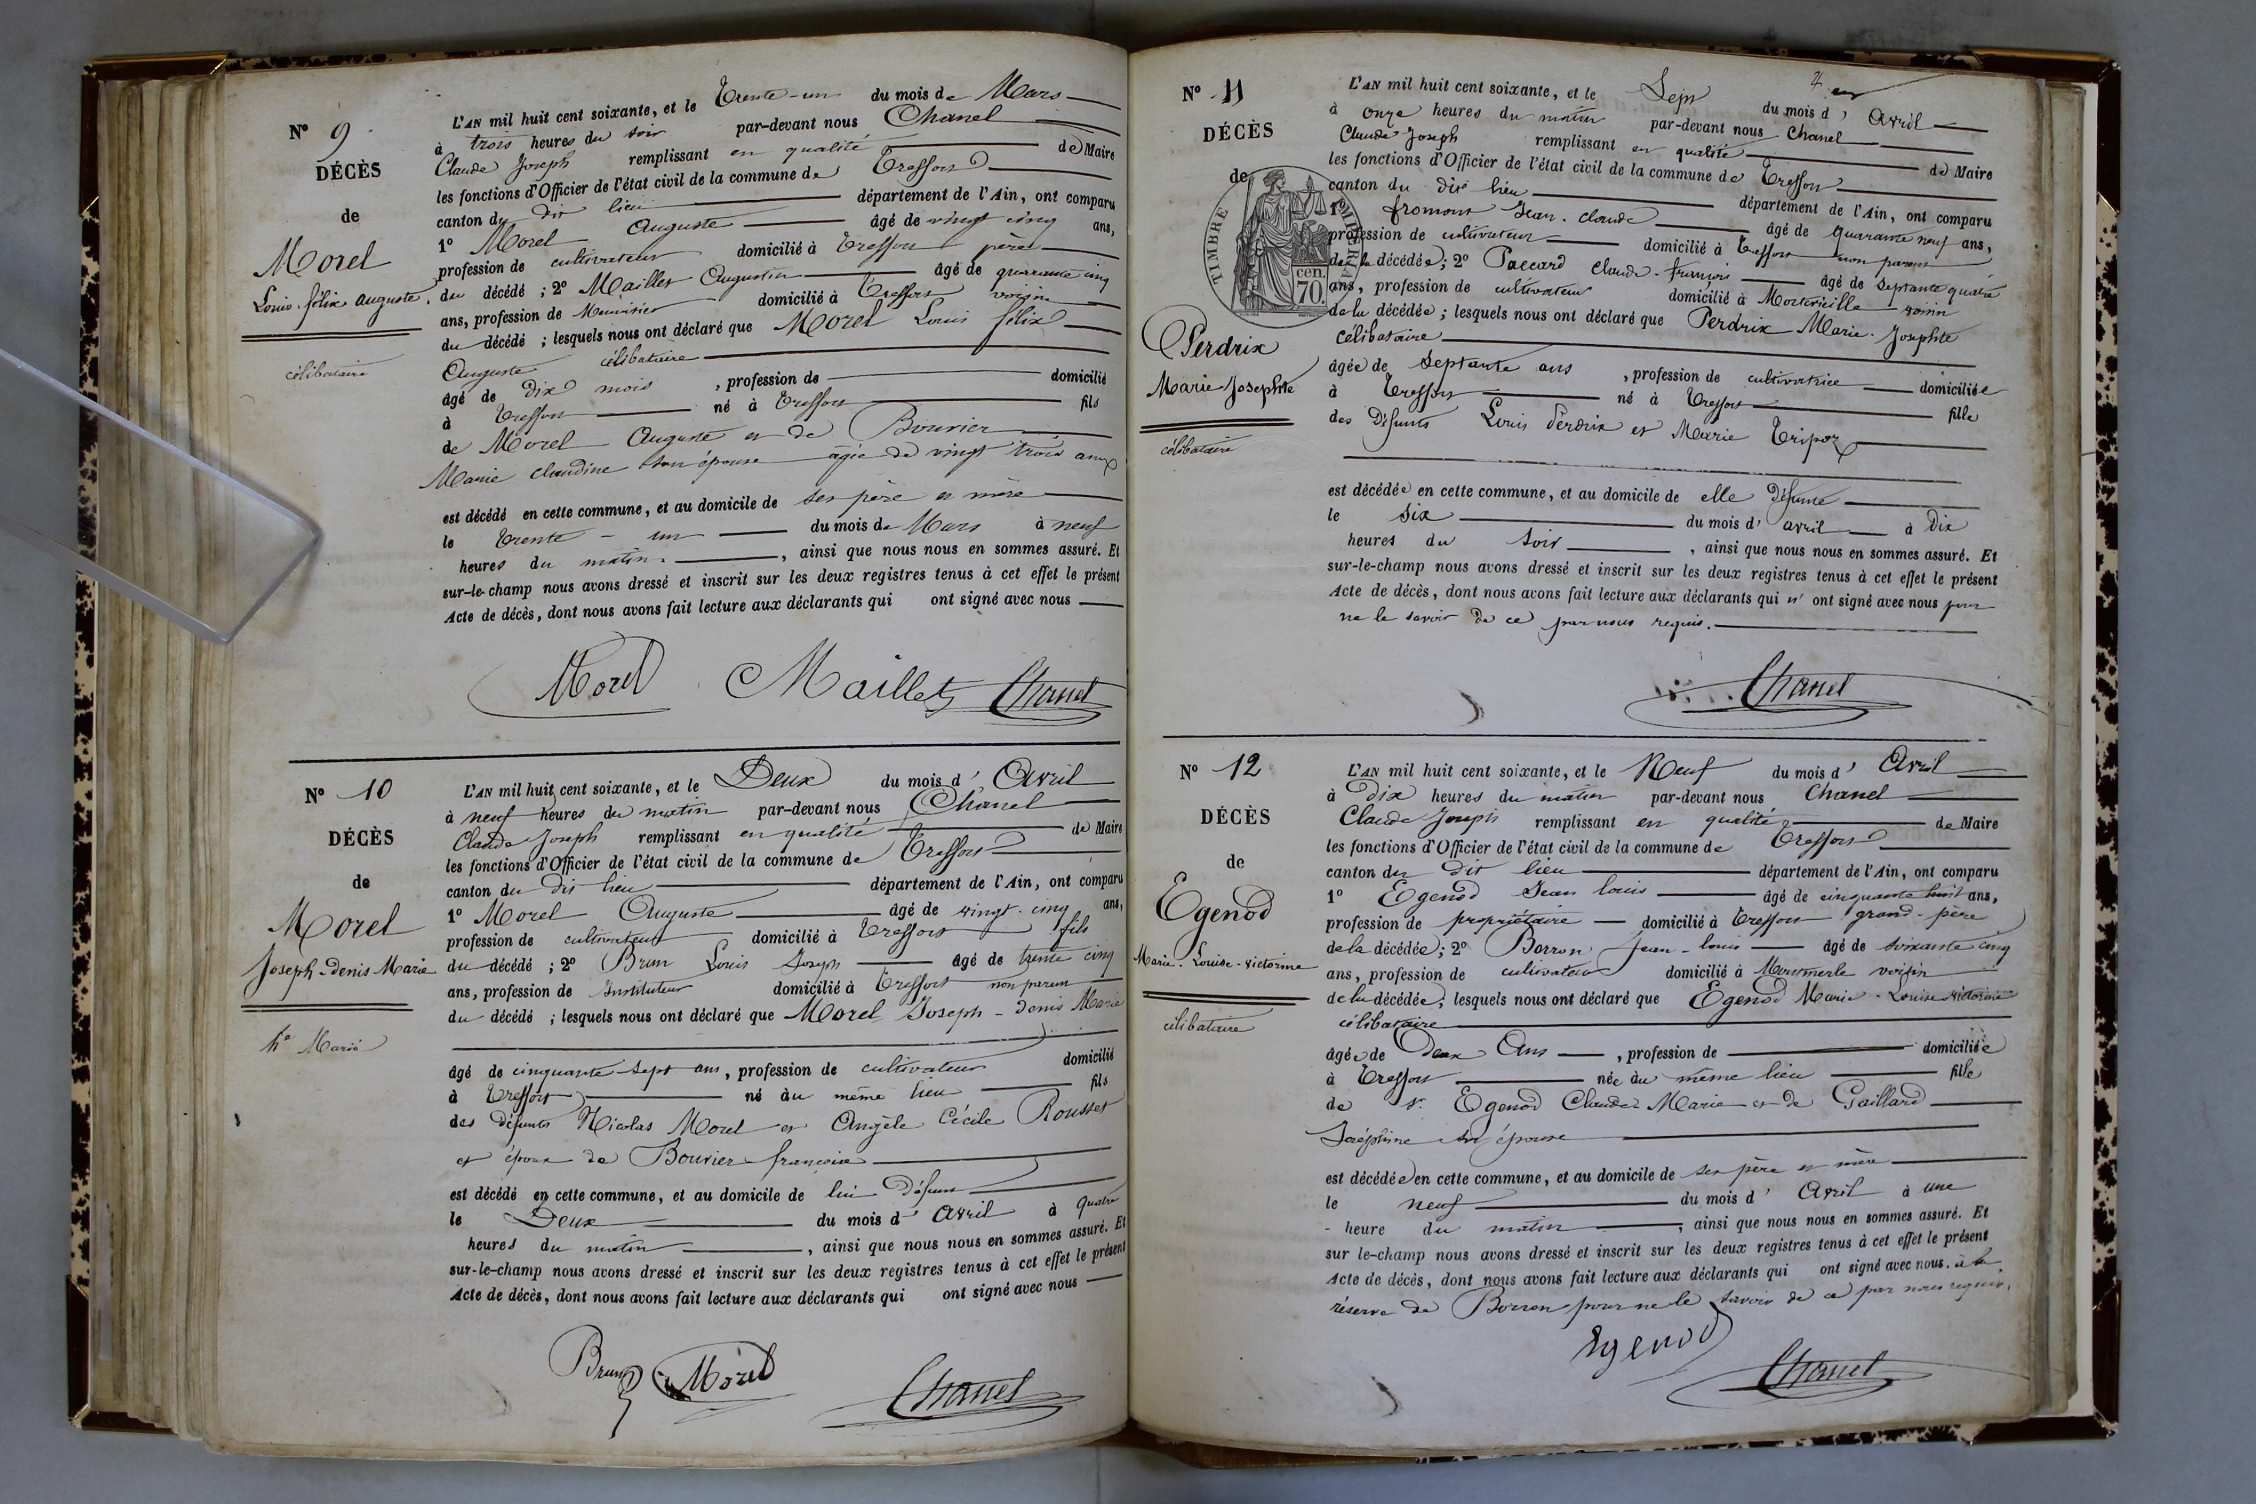 N° 9
DÉCÈS
de
Morel
Louis félix auguste.
célibataire
L'AN mil huit cent soixante, et le Trente-un du mois de Mars
à trois heures du soir par-devant nous Chanel
Claude Joseph remplissant en qualité de Maire
les fonctions d'Officier de l'état civil de la commune de Treffort
canton du dit lieu département de l'Ain, ont comparu
1° Morel Auguste âgé de vingt cinq ans,
profession de cultivateur domicilié à Treffort père
du décédé ; 2° Maillet Augustin âgé de quarante cinq
ans, profession de Menuisier domicilié à Treffort voisin
du décédé ; lesquels nous ont déclaré que Morel Louis félix
Auguste célibataire
âgé de dix mois , profession de domicilié
à Treffort né à Treffort fils
de Morel Auguste et de Bouvier
Marie claudine son épouse agée de vingt trois ans
est décédé en cette commune, et au domicile de ses père et mère
le trente-un du mois de Mars à neuf
heures du matin , ainsi que nous nous en sommes assuré. Et
sur-le-champ nous avons dressé et inscrit sur les deux registres tenus à cet effet le présent
Acte de décès, dont nous avons fait lecture aux déclarants qui ont signé avec nous
Morel Maillet Chanel
N° 10
DÉCÈS
de
Morel
Joseph-Denis Marie
he Marié
L'AN mil huit cent soixante, et le Deux du mois d' Avril
à neuf heures du matin par-devant nous Chanel
Claude Joseph remplissant en qualité de Maire
les fonctions d'Officier de l'état civil de la commune de Treffort
canton du dit lieu département de l'Ain, ont comparu
1° Morel Auguste âgé de vingt-cinq ans,
profession de cultivateur domicilié à Treffort fils
du décédé ; 2° Brun Louis Joseph âgé de trente cinq
ans, profession de Instituteur domicilié à Treffort non parent
du décédé ; lesquels nous ont déclaré que Morel Joseph-Denis Marie
âgé de cinquante-sept ans, profession de cultivateur domicilié
à Treffort né au même lieu fils
des défunts Nicolas Morel et Angèle Cécile Rousset
et époux de Bouvier françoise
est décédé en cette commune, et au domicile de lui défunt
le Deux du mois d' Avril à quatre
heures du matin , ainsi que nous nous en sommes assuré. Et
sur-le-champ nous avons dressé et inscrit sur les deux registres tenus à cet effet le présent
Acte de décès, dont nous avons fait lecture aux déclarants qui ont signé avec nous
Brun Morel Chanel
N° 11
DÉCÈS
de
TIMBRE IMPERIAL
70 cen.
Perdrix
Marie Josephte
célibataire
L'AN mil huit cent soixante, et le Sept du mois d' Avril
à onze heures du matin par-devant nous Chanel
Claude Joseph remplissant en qualité de Maire
les fonctions d'Officier de l'état civil de la commune de Treffort
canton du dit lieu département de l'Ain, ont comparu
1° fromont Jean-claude âgé de quarante neuf ans,
profession de cultivateur domicilié à Treffort non parent
de la décédée; 2° Paccard Claude-françois âgé de septante quatre
ans, profession de cultivateur domicilié à Montcieille voisin
de la décédée ; lesquels nous ont déclaré que Perdrix Marie-Josephte
célibataire
âgée de septante ans , profession de cultivatrice domiciliée
à Treffort né à Treffort fille
des défunts Louis Perdrix et Marie Tripoz
est décédée en cette commune, et au domicile de elle défunte
le six du mois d' avril à dix
heures du soir , ainsi que nous nous en sommes assuré. Et
sur-le-champ nous avons dressé et inscrit sur les deux registres tenus à cet effet le présent
Acte de décès, dont nous avons fait lecture aux déclarants qui n' ont signé avec nous pour
ne le savoir de ce par nous requis.
Chanel
N° 12
DÉCÈS
de
Egenod
Marie-Louise-victorine
célibataire
L'AN mil huit cent soixante, et le Neuf du mois d' Avril
à Dix heures du matin par-devant nous Chanel
Claude Joseph remplissant en qualité de Maire
les fonctions d'Officier de l'état civil de la commune de Treffort
canton du dit lieu département de l'Ain, ont comparu
1° Egenod Jean louis âgé de cinquante huit ans,
profession de propriétaire domicilié à Treffort grand-père
de la décédée; 2° Borron Jean-louis âgé de soixante cinq
ans, profession de cultivateur domicilié à Montmerle voisin
de la décédée; lesquels nous ont déclaré que Egenod Marie-Louise victorine
célibataire
âgée de deux Ans , profession de domiciliée
à Treffort née au même lieu fille
de Sr. Egenod Claude-Marie et de Gaillard
Joséphine son épouse
est décédée en cette commune, et au domicile de ses père et mère
le neuf du mois d' Avril à une
heure du matin , ainsi que nous nous en sommes assuré. Et
sur le-champ nous avons dressé et inscrit sur les deux registres tenus à cet effet le présent
Acte de décès, dont nous avons fait lecture aux déclarants qui ont signé avec nous. à la
réserve de Borron pour ne le savoir de ce par nous requis.
Egenod
Chanel